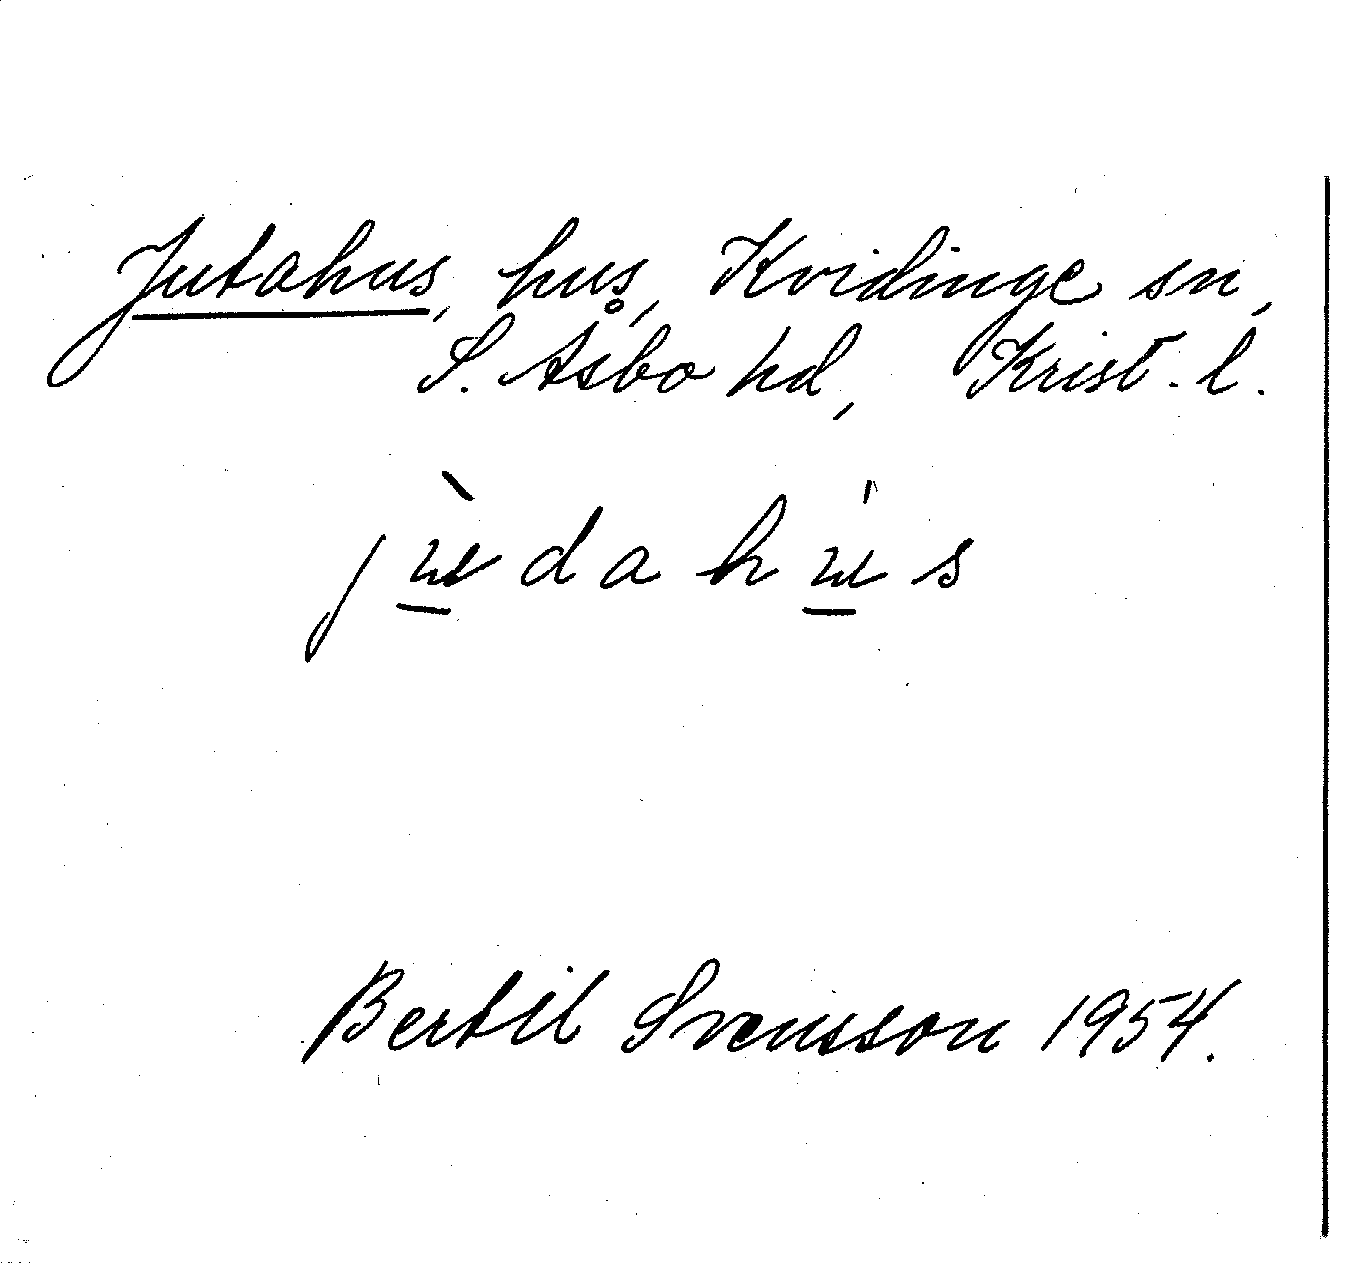 Jutahus, hus, Kvidinge sn,
S. Åsbo hd, Krist. l.
jùdahús
Bertil Svensson 1954.